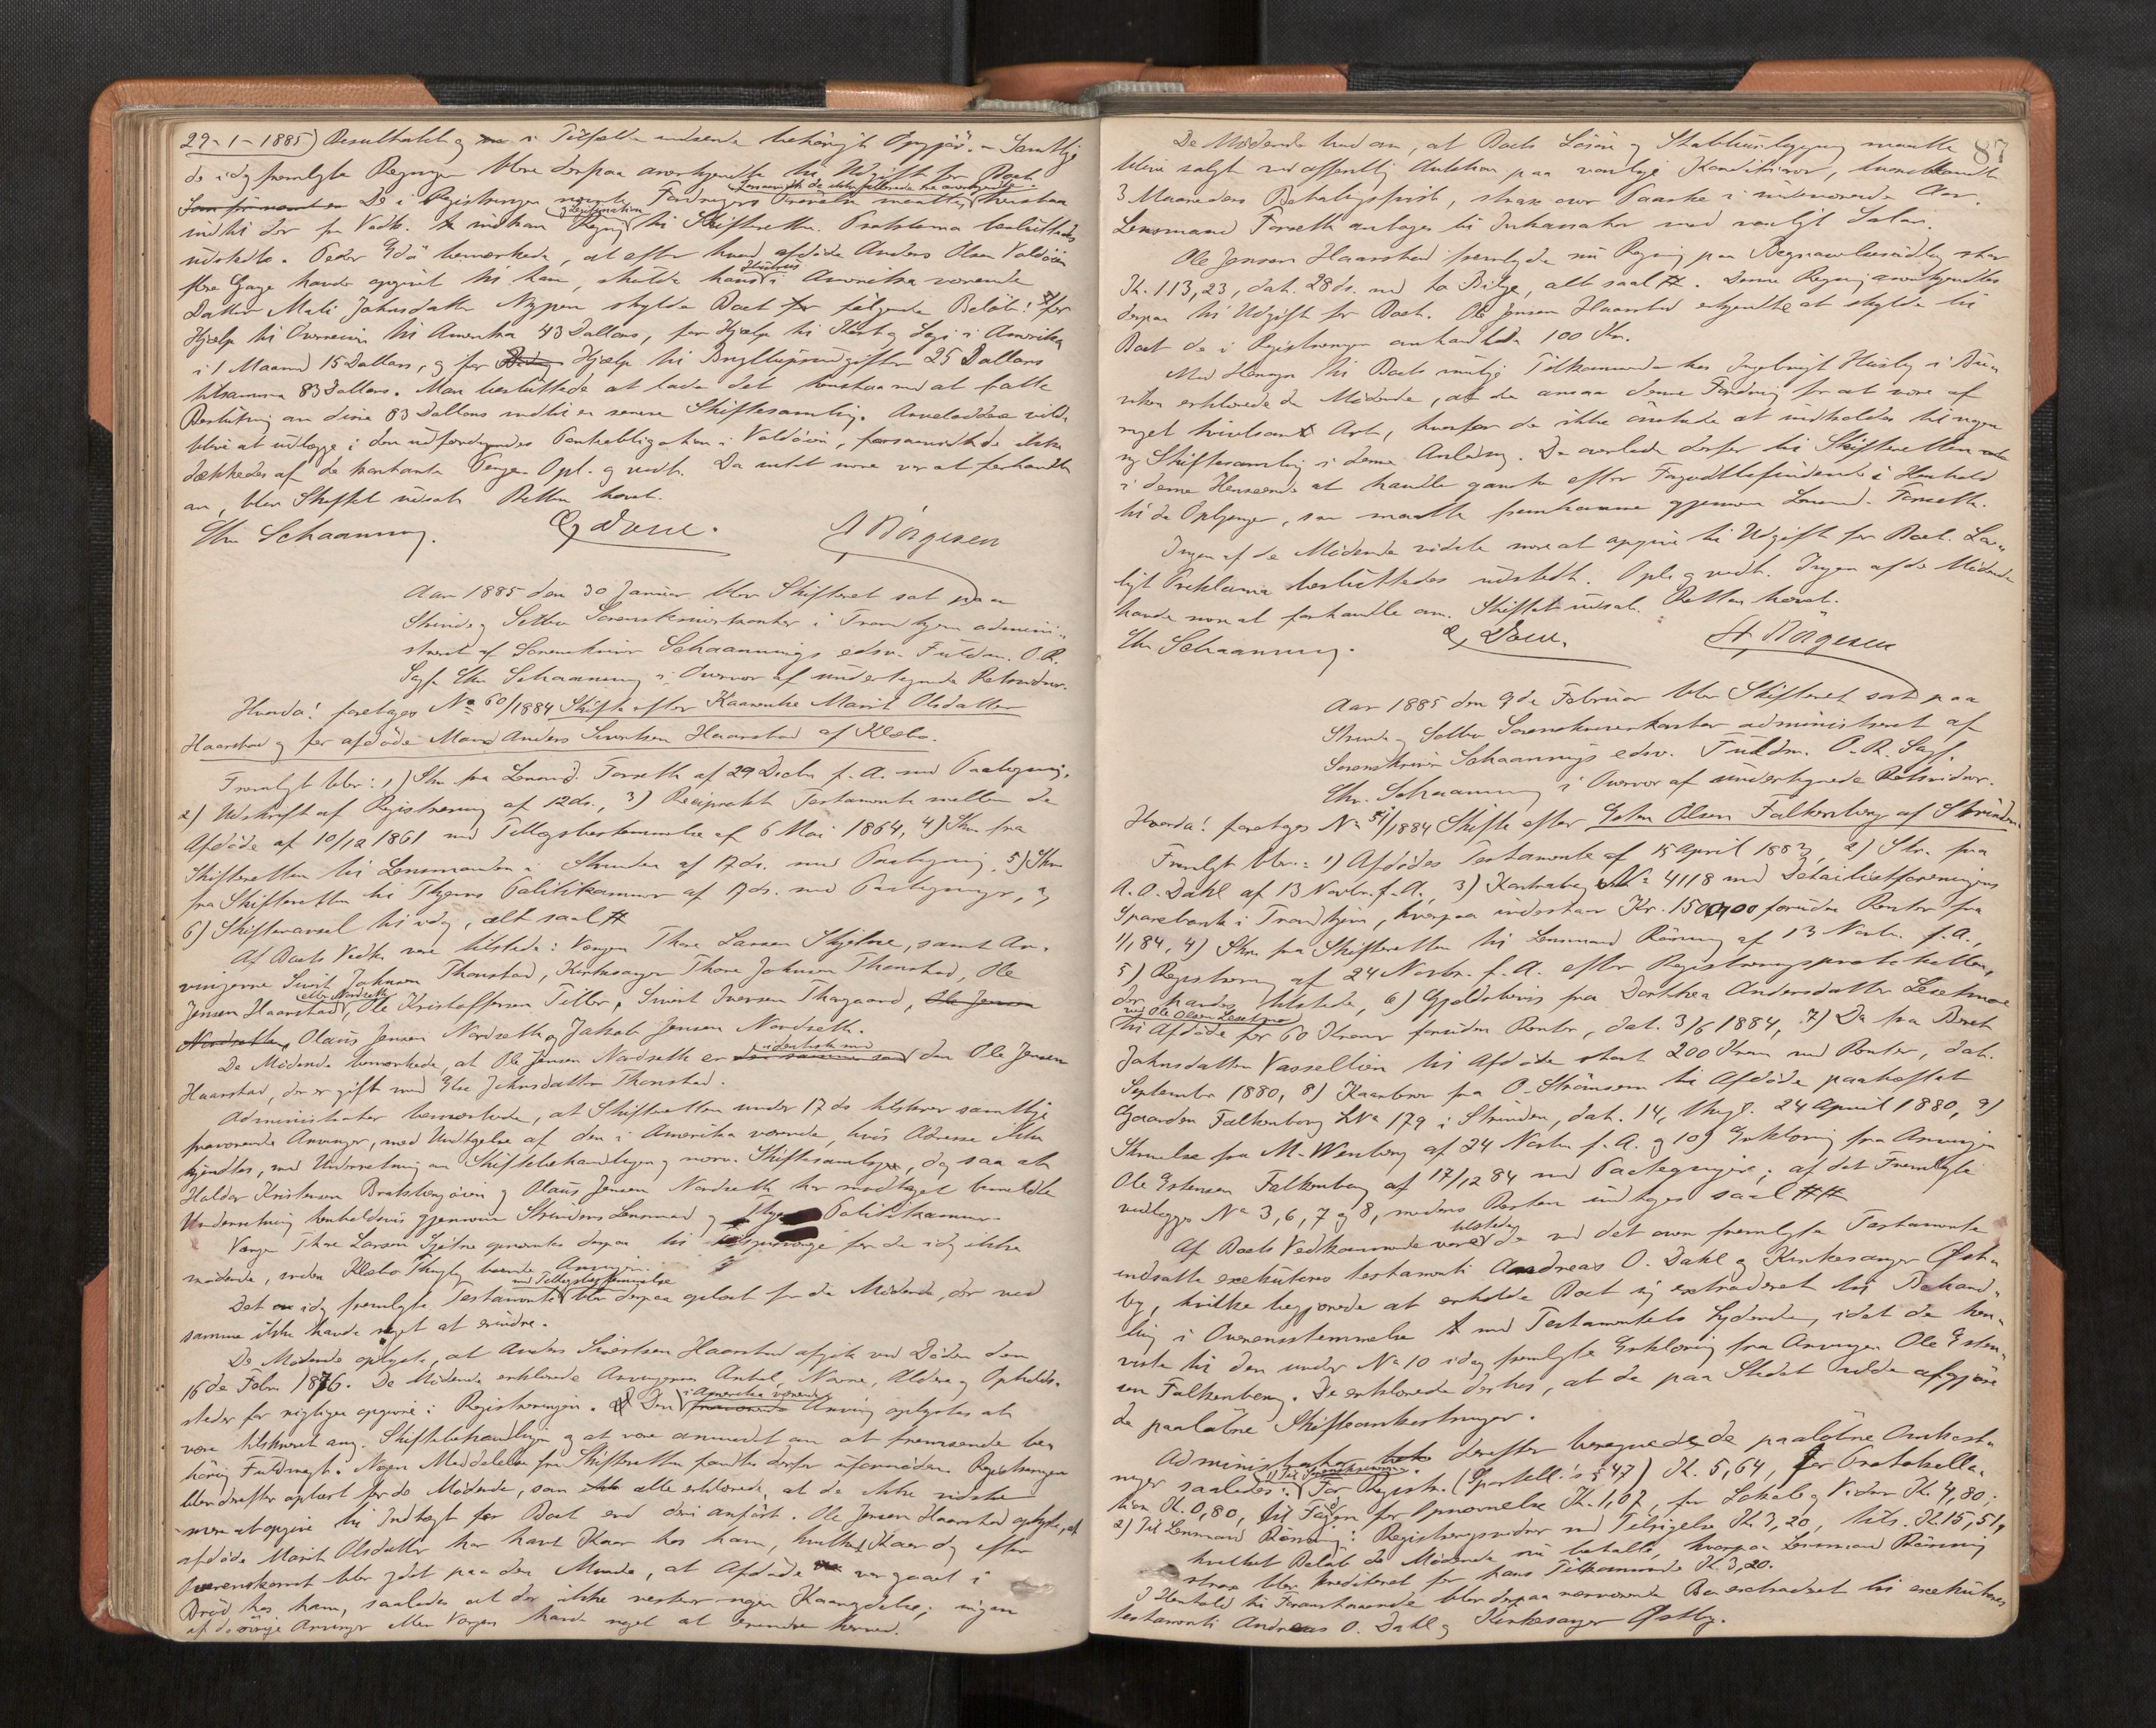 29-1-1885) Resultatet og i Tilfælde indsende behörigt Opgjör. - Samtlige
de idag fremlagte Regninger bleve derpaa anerkjendte til Udgift for Boet
forsaavidt de ikke allerede ere anerkjendte.
De i Registreringen nævnte Fordringer Provenu maatte henstaa
og Legitimation
indtil der fra Vedk. indkom Regning til Skifteretten. Proklama besluttedes
udstedt. Peder Ydö bemærkede, at efter hvad afdöde Anders Olsen Valdöien
Hustrus
flere Gange havde opgivet til ham, skulde hans i Amerika værende
Datter Mali Johnsdatter Nypen skylde Boet for fölgende Beløb: for
Hjælp til Overreisen til Amerika 43 Dollars, for Hjælp til Kost og Logi i Amerika
i 1 Maaned 15 Dollars, og for Hjælp til Bryllupsudgifter 25 Dollars
tilsammen 83 Dollars. Man besluttede at lade det henstaa med at fatte
Beslutning om disse 83 Dollars indtil en senere Skiftesamling. Arveladdene vilde
blive at udlægge i den udfærdigendes Panteobligation i Valdöien, forsaavidt de ikke
dækkedes af de kontante Penge. Opl. og vedt. Da intet mere var at forhandle
om, blev Skiftet udsat. Retten hævet.
Chr Schaanning. A Börgesen
Aar 1885 den 30 Januar blev Skifteret sat paa
Strinde og Selbu Sorenskriverkontor i Trondhjem admini-
streret af Sorenskriver Schaannings edsv. Fuldm. O.R.
Sagf. Chr Schaanning i Overvær af undertegnede Retsvidner.
Hvorda! foretages No 60/1884 Skifte efter Kaarenke Marit Olsdatter
Haarstad og för afdöde Mand Anders Sivertsen Haarstad af Klæbo.
Fremlagt blev: 1) Skr. fra Lensmd. Forseth af 29 Decbr f. A. med Paategning,
2) Udskrift af Registrering af 12 ds., 3) Reciprokt Testamente mellem de
Afdöde af 10/12 1861 med Tillægsbestemmelse af 6 Mai 1864, 4) Skr fra
Skifteretten til Lensmanden i Strinden af 17 ds. med Paategning, 5) Skr
fra Skifteretten til Thjems Politikammer af 17 ds. med Paategninger, og
6) Skiftevarsel til idag, alt saal #
Af Boets Vedk. vare tilstede: Værgen Thore Larsen Skjetne, samt Ar-
vingerne Sivert Johnsen Thonstad, Kirkesanger Thore Johnsen Thonstad, Ole
eller Nordseth
Jensen Haarstad, Ole Kristoffersen Tiller, Sivert Iversen Thorgaard, Ole Jensen
Nordseth, Olaus Jensen Nordseth og Jakob Jensen Nordseth.
identisk med
De Mödende bemærkede, at Ole Jensen Nordseth er den samme som den Ole Jensen
Haarstad, der er gift med Johnsdatter Thonstad.
Administrator bemærkede, at Skifteretten under 17 ds tilskrev samtlige
fraværende Arvinger, med Undtagelse af den i Amerika værende, hvis Adresse ikke
kjendtes, med Underretning om Skiftebehandlingen og nærv. Skiftesamling, og saa at
Haldor Kristensen Bratsbergöien og Olaus Jensen Nordseth har modtaget bemeldte
Underretning henholdsvis gjennem Strindens Lensmand og Thjems Politikammer.
Værge Thore Larsen Sjetne opnævntes derpaa til for de idag ikke
mödende, inden Klæbo Thinglag boende Arvinger.
med Tillægsbestemmelse
Det idag fremlagte Testamente blev derpaa oplæst for de Mödende, der ved
samme ikke havde noget at erindre.
De Mödende oplyste, at Anders Sivertsen Haarstad afgik ved Döden den
16de Febr. 1876. De Mödende erklærede Arvingernes Antal, Navne, Aldere og Opholds-
steder for rigtigen opgivne i Registreringen. i Amerika værende
Den fraværende Arving oplystes at
være tilskrevet ang. Skiftebehandlingen og at være anmodet om at fremsende be-
hörig Fuldmagt. Nogen Meddelelse fra Skifteretten fandtes derfor ufornöden. Registreringen
blev derefter oplæst for de Mödende, som alle erklærede, at de ikke vidste
mere at opgive til Indtægt for Boet end deri anfört. Ole Jensen Haarstad oplyste, at
afdöde Marit Olsdatter har havt Kaar hos ham, hvilket Kaar dog efter
Overenskomst blev ydet paa den Maade, at Afdöde var gaaet i
Bröd hos ham, saaledes at der ikke resterer nogen Kaarydelse; ingen
af de övrige Arvinger eller Værgen havde noget at erindre herved.
87
De Mödende bad om, at Boets Lösöre og Stabbursbygning maatte
blive solgt ved offentlig Auktion paa vanlige Konditioner,
3 Maaneders Betalingsfrist, strax over Paaske i indeværende Aar.
Lensmand Forseth antages til Inkassator mod vanligt Salær.
Ole Jensen Haarstad fremlagde nu Regning paa Begravelsesudlæg stor
Kr. 113,23, dat. 28 ds. med to Bilag, alt saal #. Denne Regning anerkjendtes
derpaa til Udgift for Boet. Ole Jensen Haarstad erkjendte at skylde til
Boet de i Registreringen anhandlede 100 Kr.
Med Hensyn til Boets mulige Tilkommende hos Ingebrigt Husby i Bu-
viken erklærede de Mödende, at de ansaa denne Fordring for at være af
meget tvivlsomt Art, hvorfor de ikke önskede at indkaldes til nogen
ny Skiftesamling i denne Anledning. De overlode derfor til Skifteretten
i denne Henseende at handle ganske efter Forgodtbefindende i Henhold
til de Oplysninger, som maatte fremkomme gjennem Lensmd. Forseth.
Ingen af de Mödende vidste mere at opgive til Udgift for Boet. Lov-
ligt Proklama besluttedes udstedt. Opl. og vedt. Ingen af de Mödende
havde mere at forhandle om. Skiftet udsat. Retten hævet.
Chr Schaanning. A. Börgesen
Aar 1885 den 9de Februar blev Skifteret sat paa
Strinde og Selbu Sorenskriverkontor administreret af
Sorenskriver Schaannings edsv. Fuldm. O. R. Sagf.
Chr. Schaanning i Overvær af undertegnede Retsvidner.
Hvorda! foretages No 51/1884 Skifte efter Esten Olsen Falkenberg af Strinden.
Fremlagt blev: 1) Afdödes Testamente af 15 April 1883, 2) Skr. fra
A. O. Dahl af 13 Novbr. f. A., 3) Kontrabog No 4118 med Detailistforeningens
Sparebank i Trondhjem, hvorpaa indestaar Kr. 1500,00 foruden Renter fra
1/1 84, 4) Skr. fra Skifteretten til Lensmand Rönning af 13 Novbr. f. A.,
5) Registrering af 24 Novbr. f. A. efter Registreringsprotokollen,
der havdes tilstede, 6) Gjældsbevis fra Dorthea Andersdatter Lesetmoe
ved Ole Olsen Lesetmoe
til Afdöde for 60 Kroner foruden Renter, dat. 3/6 1884, 7) Do fra Beret
Johnsdatter Vasseltien til Afdöde stort 200 Kroner med Renter, dat.
September 1880, 8) Kaarbrev fra O. Strömsem til Afdöde paaheftet
Gaarden Falkenborg LNo 179 i Strinden, dat. 14, thingl. 24 April 1880, 9)
Skrivelse fra M. Wenberg af 24 Novbr f. A. og 10) Erklæring fra Arvingen
Ole Estensen Falkenberg af 17/12 84 med Paategninger; af det Fremlagte
vedlægges No 3, 6, 7 og 8, medens Resten indtages saal ##
tilstede
Af Boets Vedkommende vare de ved det oven fremlagte Testamente
indsatte exekutores testamenti Andreas O. Dahl og Kirkesanger Östby,
hvilke begjærede at erholde Boet sig extraderet til Behand-
ling i Overensstemmelse med Testamentets Lydende, idet de hen-
viste til den under No 10 idag fremlagte Erklæring fra Arvingen Ole Esten-
sen Falkenberg. De erklærede derhos, at de paa Stedet vilde afgjöre
de paalöbne Skifteomkostninger.
Administrator derefter beregnede de paalöbne Omkost-
1) Til Sorenskriveren:
ninger saaledes: For Registr. (Sportell.'s § 47) Kr. 5,64, for Protokolla-
tion Kr. 0,80, til Fogden for Opnævnelse Kr. 1,07, for Lokale og Vidner Kr. 4,80;
tils. Kr. 15,51,
2) Til Lensmand Rönning: Registreringsvidner med Tilsigelse Kr. 3,20,
hvilket Beløb de Mödende nu betalte, hvorpaa Lensmand Rönning
strax blev krediteret for hans Tilkommende Kr. 3,20.
I Henhold til Foranstaaende blev derpaa nærværende Bo extraderet til exekutores
testamenti Andreas O. Dahl og Kirkesanger Östby.